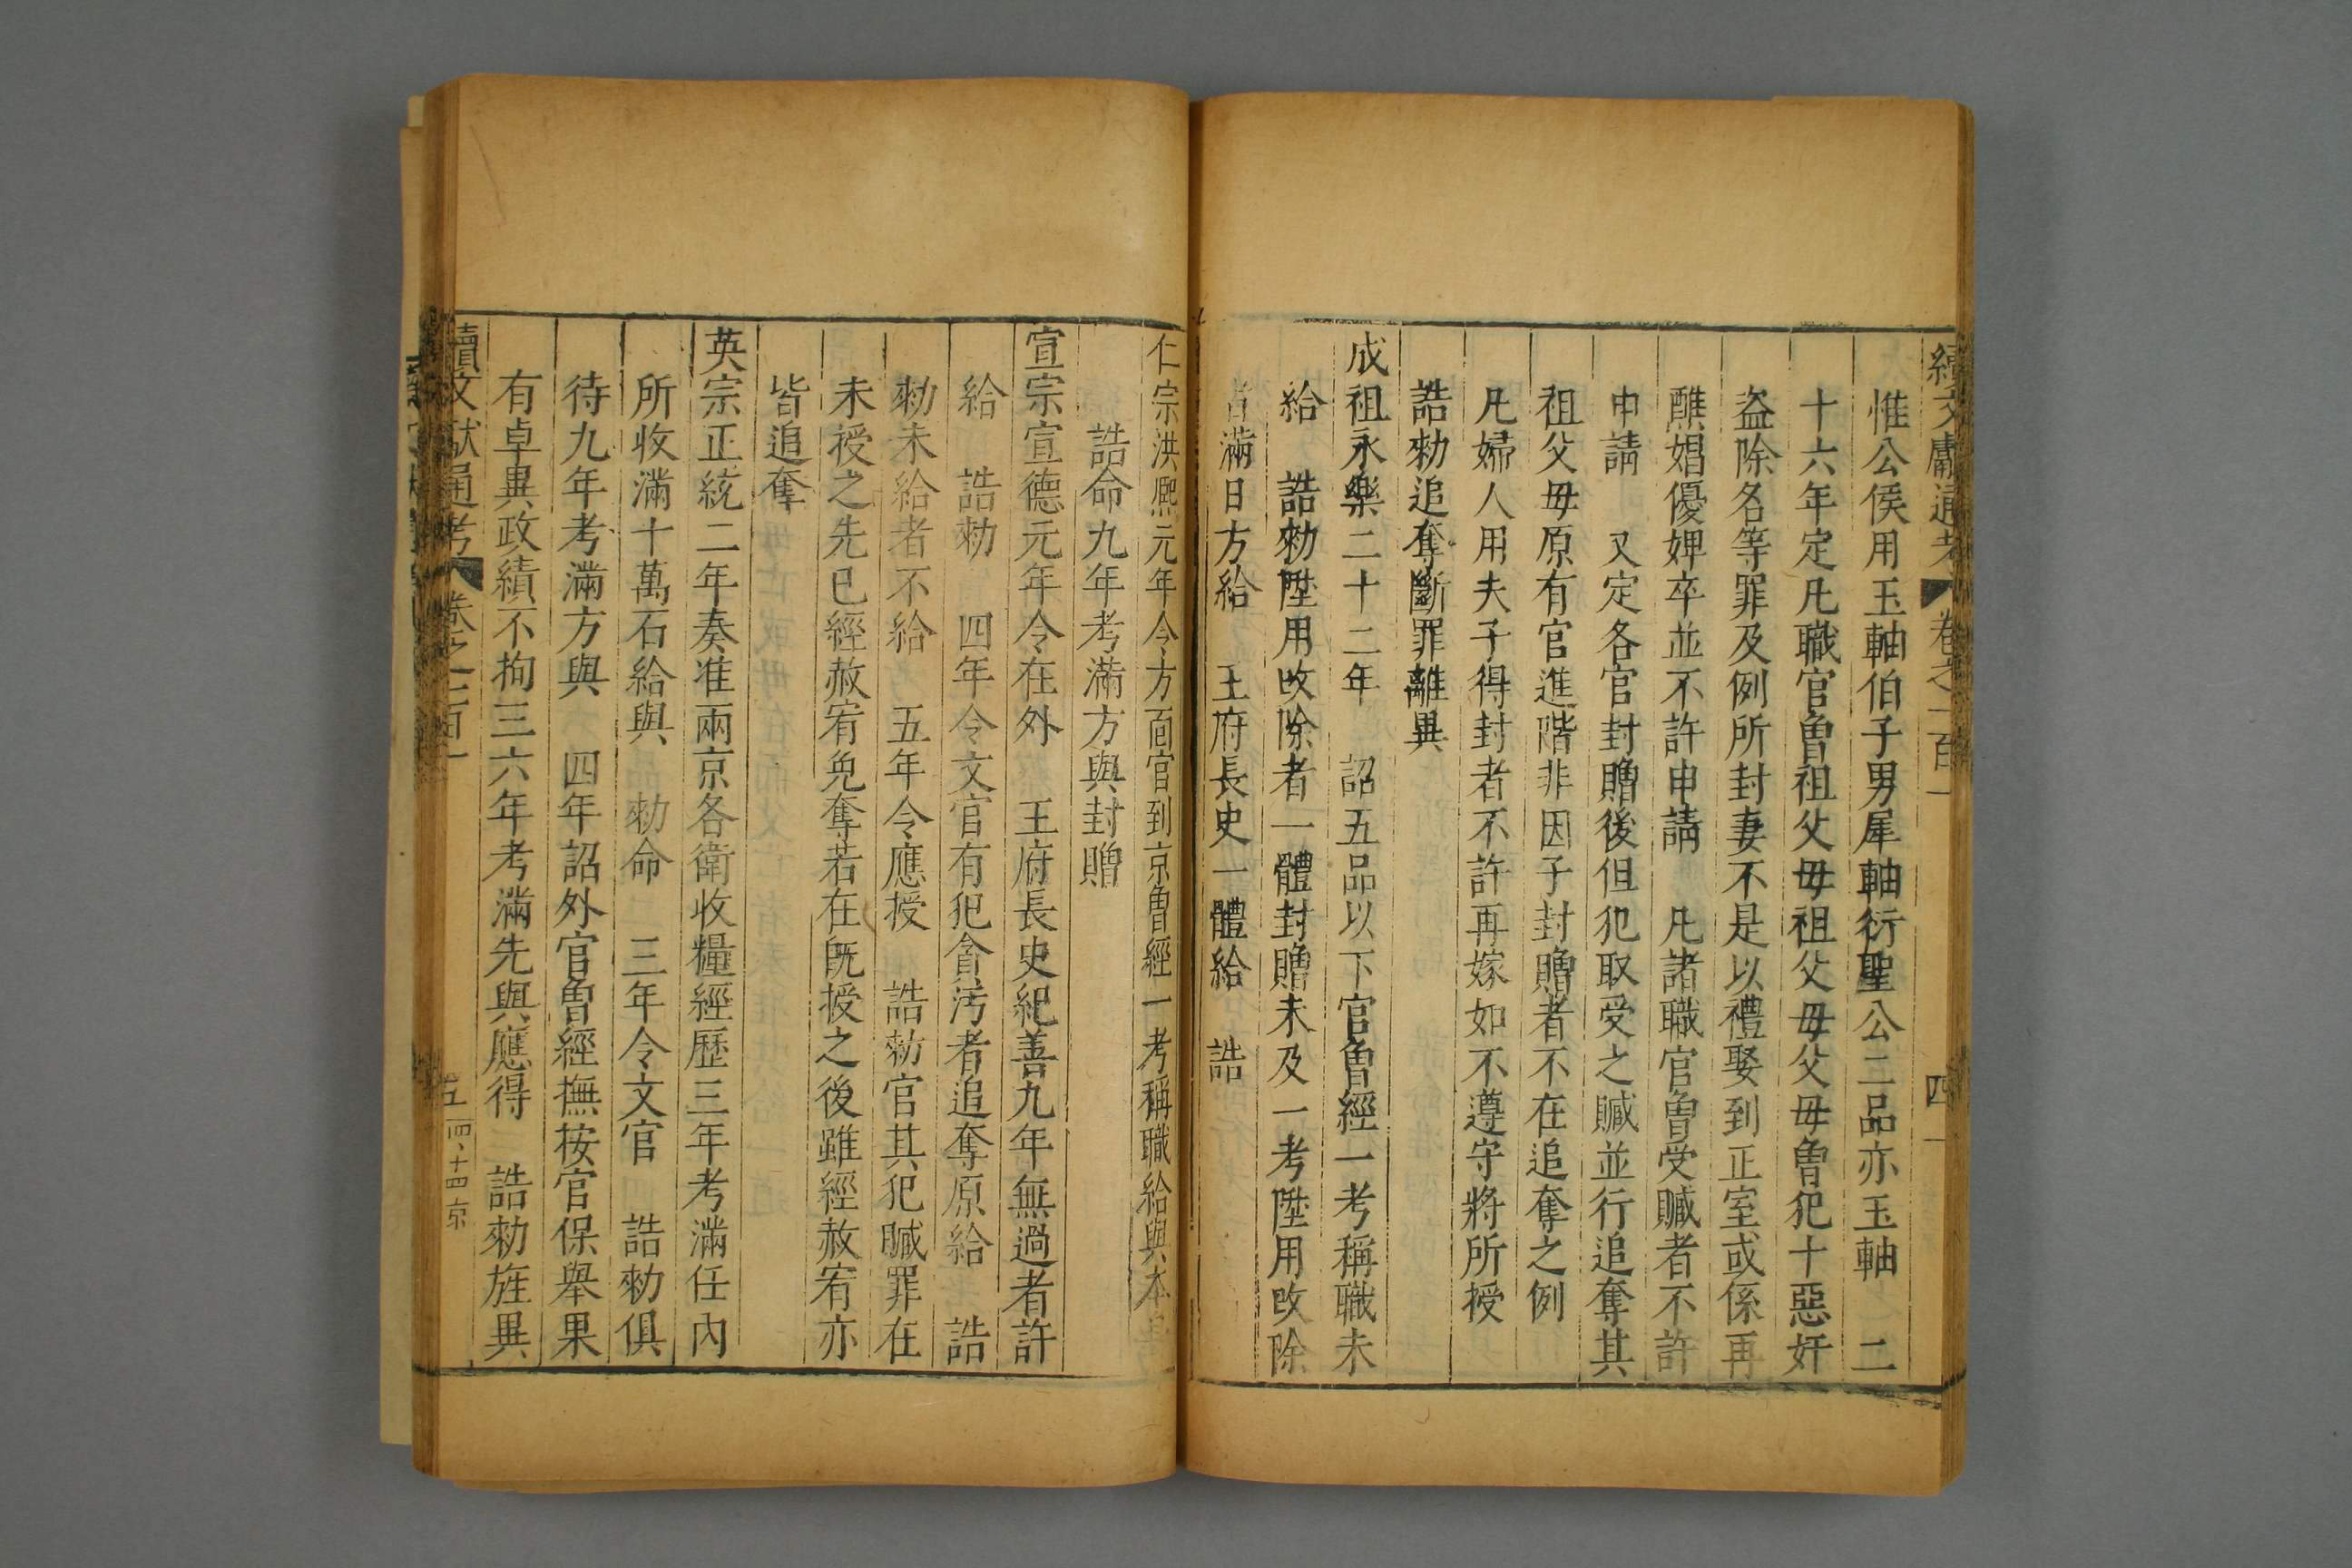 續文獻通考 卷之一百一 四
惟公侯用玉軸伯子男犀軸衍聖公二品亦玉軸 二
十六年定凡職官曾祖父母祖父母父母曾犯十惡奸
盗除名等罪及例所封妻不是以禮娶到正室或係再
醮娼優婢卒並不許申請 凡諸職官曾受贓者不許
申請 又定各官封贈後但犯取受之贓並行追奪其
祖父母原有官進階非因子封贈者不在追奪之例
凡婦人用夫子得封者不許再嫁如不遵守將所授
誥勑追奪斷罪離異
成祖永樂二十二年 詔五品以下官曾經一考稱職未
給 誥勑陞用改除者一體封贈未及一考陞用改除
滿日方給 王府長史一體給 誥
仁宗洪熈元年令方面官到京曾經一考稱職給與本
誥命九年考滿方與封贈
宣宗宣德元年令在外 王府長史紀善九年無過者許
給 誥勑 四年令文官有犯貪污者追奪原給 誥
勑未給者不給 五年令應授 誥勑官其犯贓罪在
未授之先已經赦宥免奪若在既授之後雖經赦宥亦
皆追奪
英宗正統二年奏准兩京各衛收糧經歷三年考滿任內
所收滿十萬石給與 勑命 三年令文官 誥勑俱
待九年考滿方與 四年詔外官曾經撫按官保舉果
有卓異政績不拘三六年考滿先與應得 誥勑旌異
續文獻通考 卷之一百一 五 四、十四京